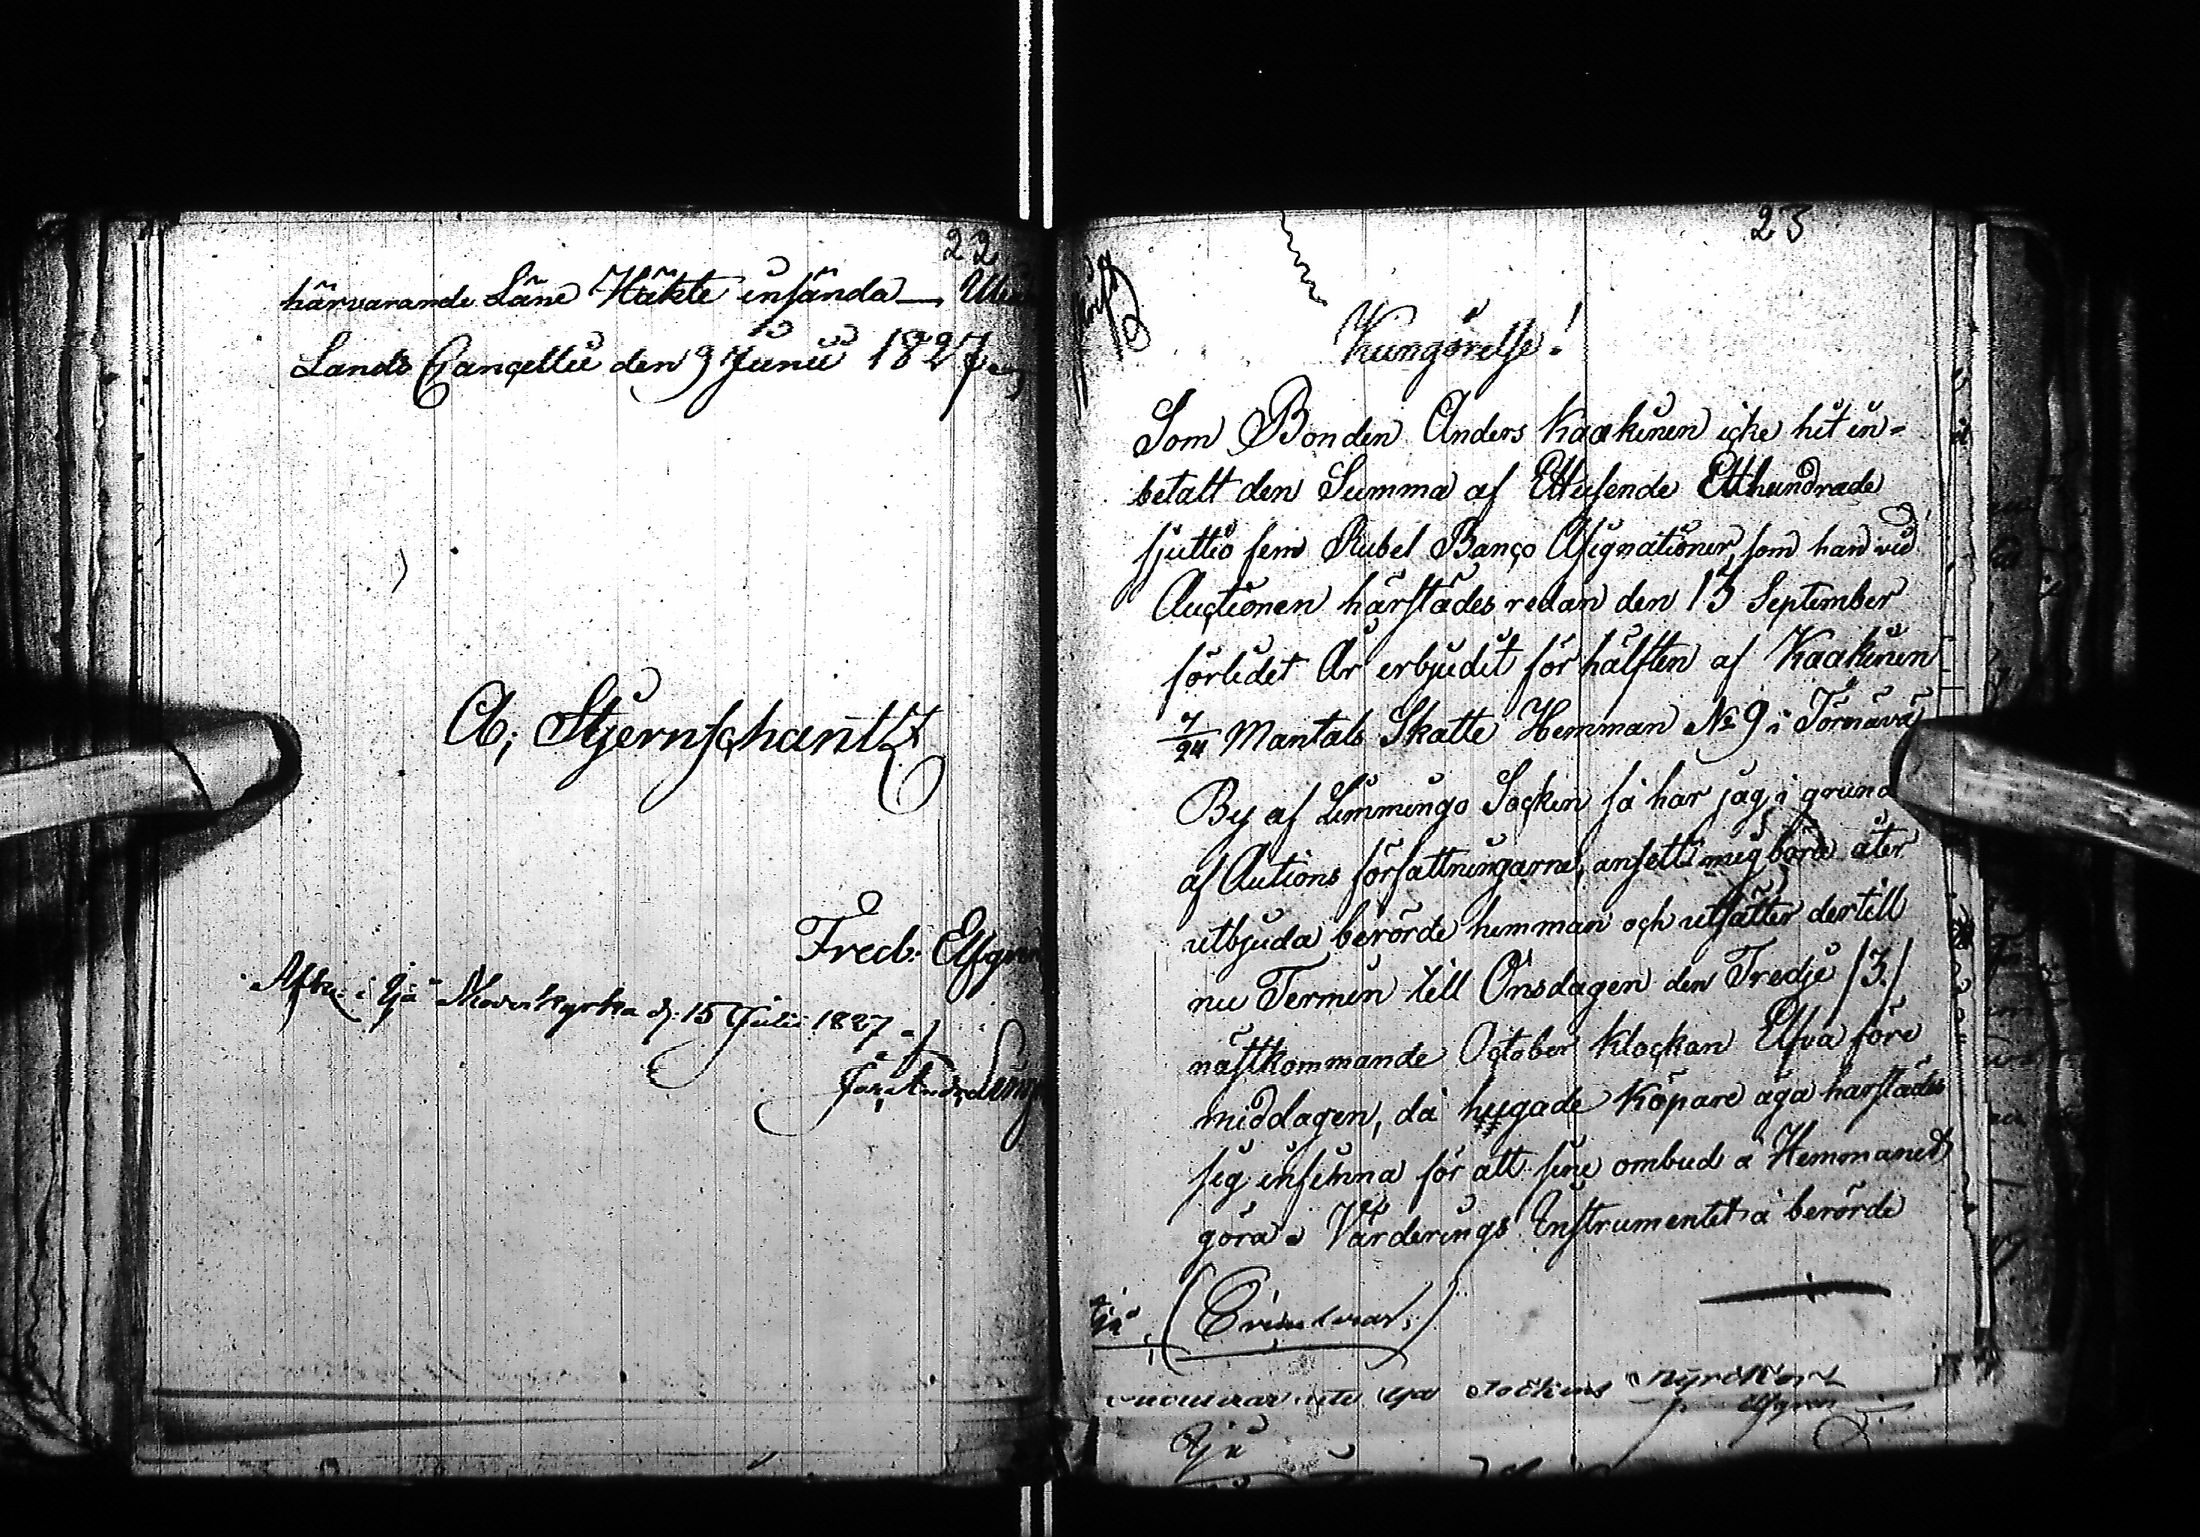 22
härvarande Läne Häkte insända —
Lands Cancellie den 9 Junii 1827
A; Stjernschantz
Fred: Elfgren
i Ijå Moderkyrka d: 15 Julii 1827 af
23
Kungörelse!
Som Bonden Anders Kaakinen icke hit in-
betalt den Summa af Ettusende Etthundrade
sjuttio fem Rubel Banco Assignationer, som han vid
Auctionen härstädes redan den 13 September
förledet År erbjudit för hälften af Kaakinen
7/24 Mantals Skatte Hemman No 9 i Törmävä
By af Limmingo Sockn så har jag i grund
af Autions författningarne, ansett mig böra åter
utbjuda berörde hemman och utsätter dertill
nu Termin till Onsdagen den Tredje /3./
nästkommande October klockan Elfva före
middagen, då hugade Köpare äga härstädes
sig infinna för att sine ombud å Hemmanet
göra Värderings Instrumentet å berörde
Ijå (Circulerar.)
Ijå Sockens
Elfgren
Ijå